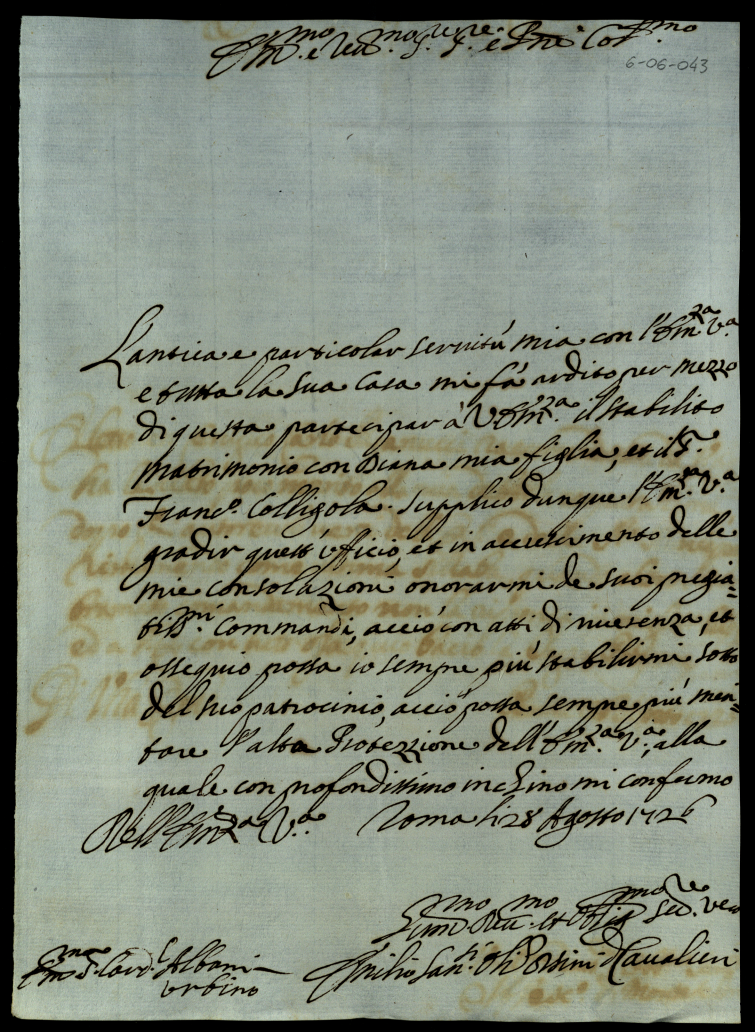 Em.mo e Reu.mo S.re S.re e Pne Col.mo
6-06-043
L'antica e particolar seruitù mia con l'Em.za V.a
e tutta la sua Casa mi fà ardito per mezzo
di questa partecipar à V. Em.za il stabilito
matrimonio con Diana mia figlia, et il S.r
Franc.o Colligola. supplico dunque l'Em.za V.a
gradir quest'vfficio, et in accrescimento delle
mie consolazioni onorarmi de suoi pregia=
tiss.mi Commandi, acciò con atti di riuerenza, et
ossequio possa io sempre più stabilirmi sotto
del suo patrocinio, acciò possa sempre più meri=
tare l'alta Protezzione dell'Em.za V.a, alla
quale con profondissimo inchino mi confermo
Dell'Em.za V.a Roma li 28 Agosto 1726
Hum.mo Deu.mo et Obligm.o Se.re vero
Em.mo S. Card.l Albani
Vrbino
Emilio San.ti Orsini d Caualieri